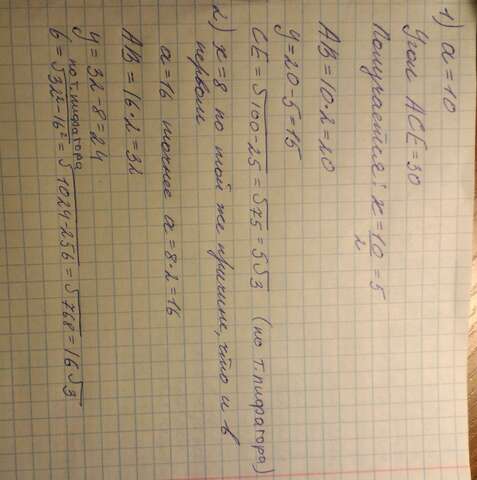 1) a=10
Угол ACE=30
Получается: x=10/2=5
AB=10·2=20
y=20-5=15
CE=√100-25=√75=5√3 (по т.пифагора)
2) x=8 по той же причине, что и в
первом
a=16 точнее a=8·2=16
AB=16·2=32
y=32-8=24
по т.пифагора
b=√32²-16²=√1024-256=√768=16√3